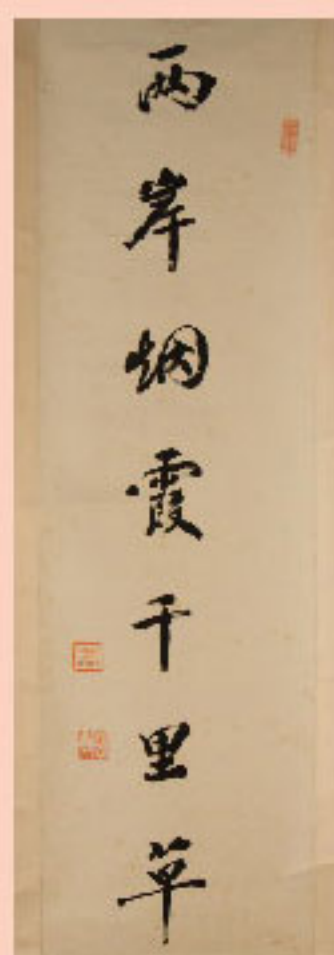 两岸烟霞千里草